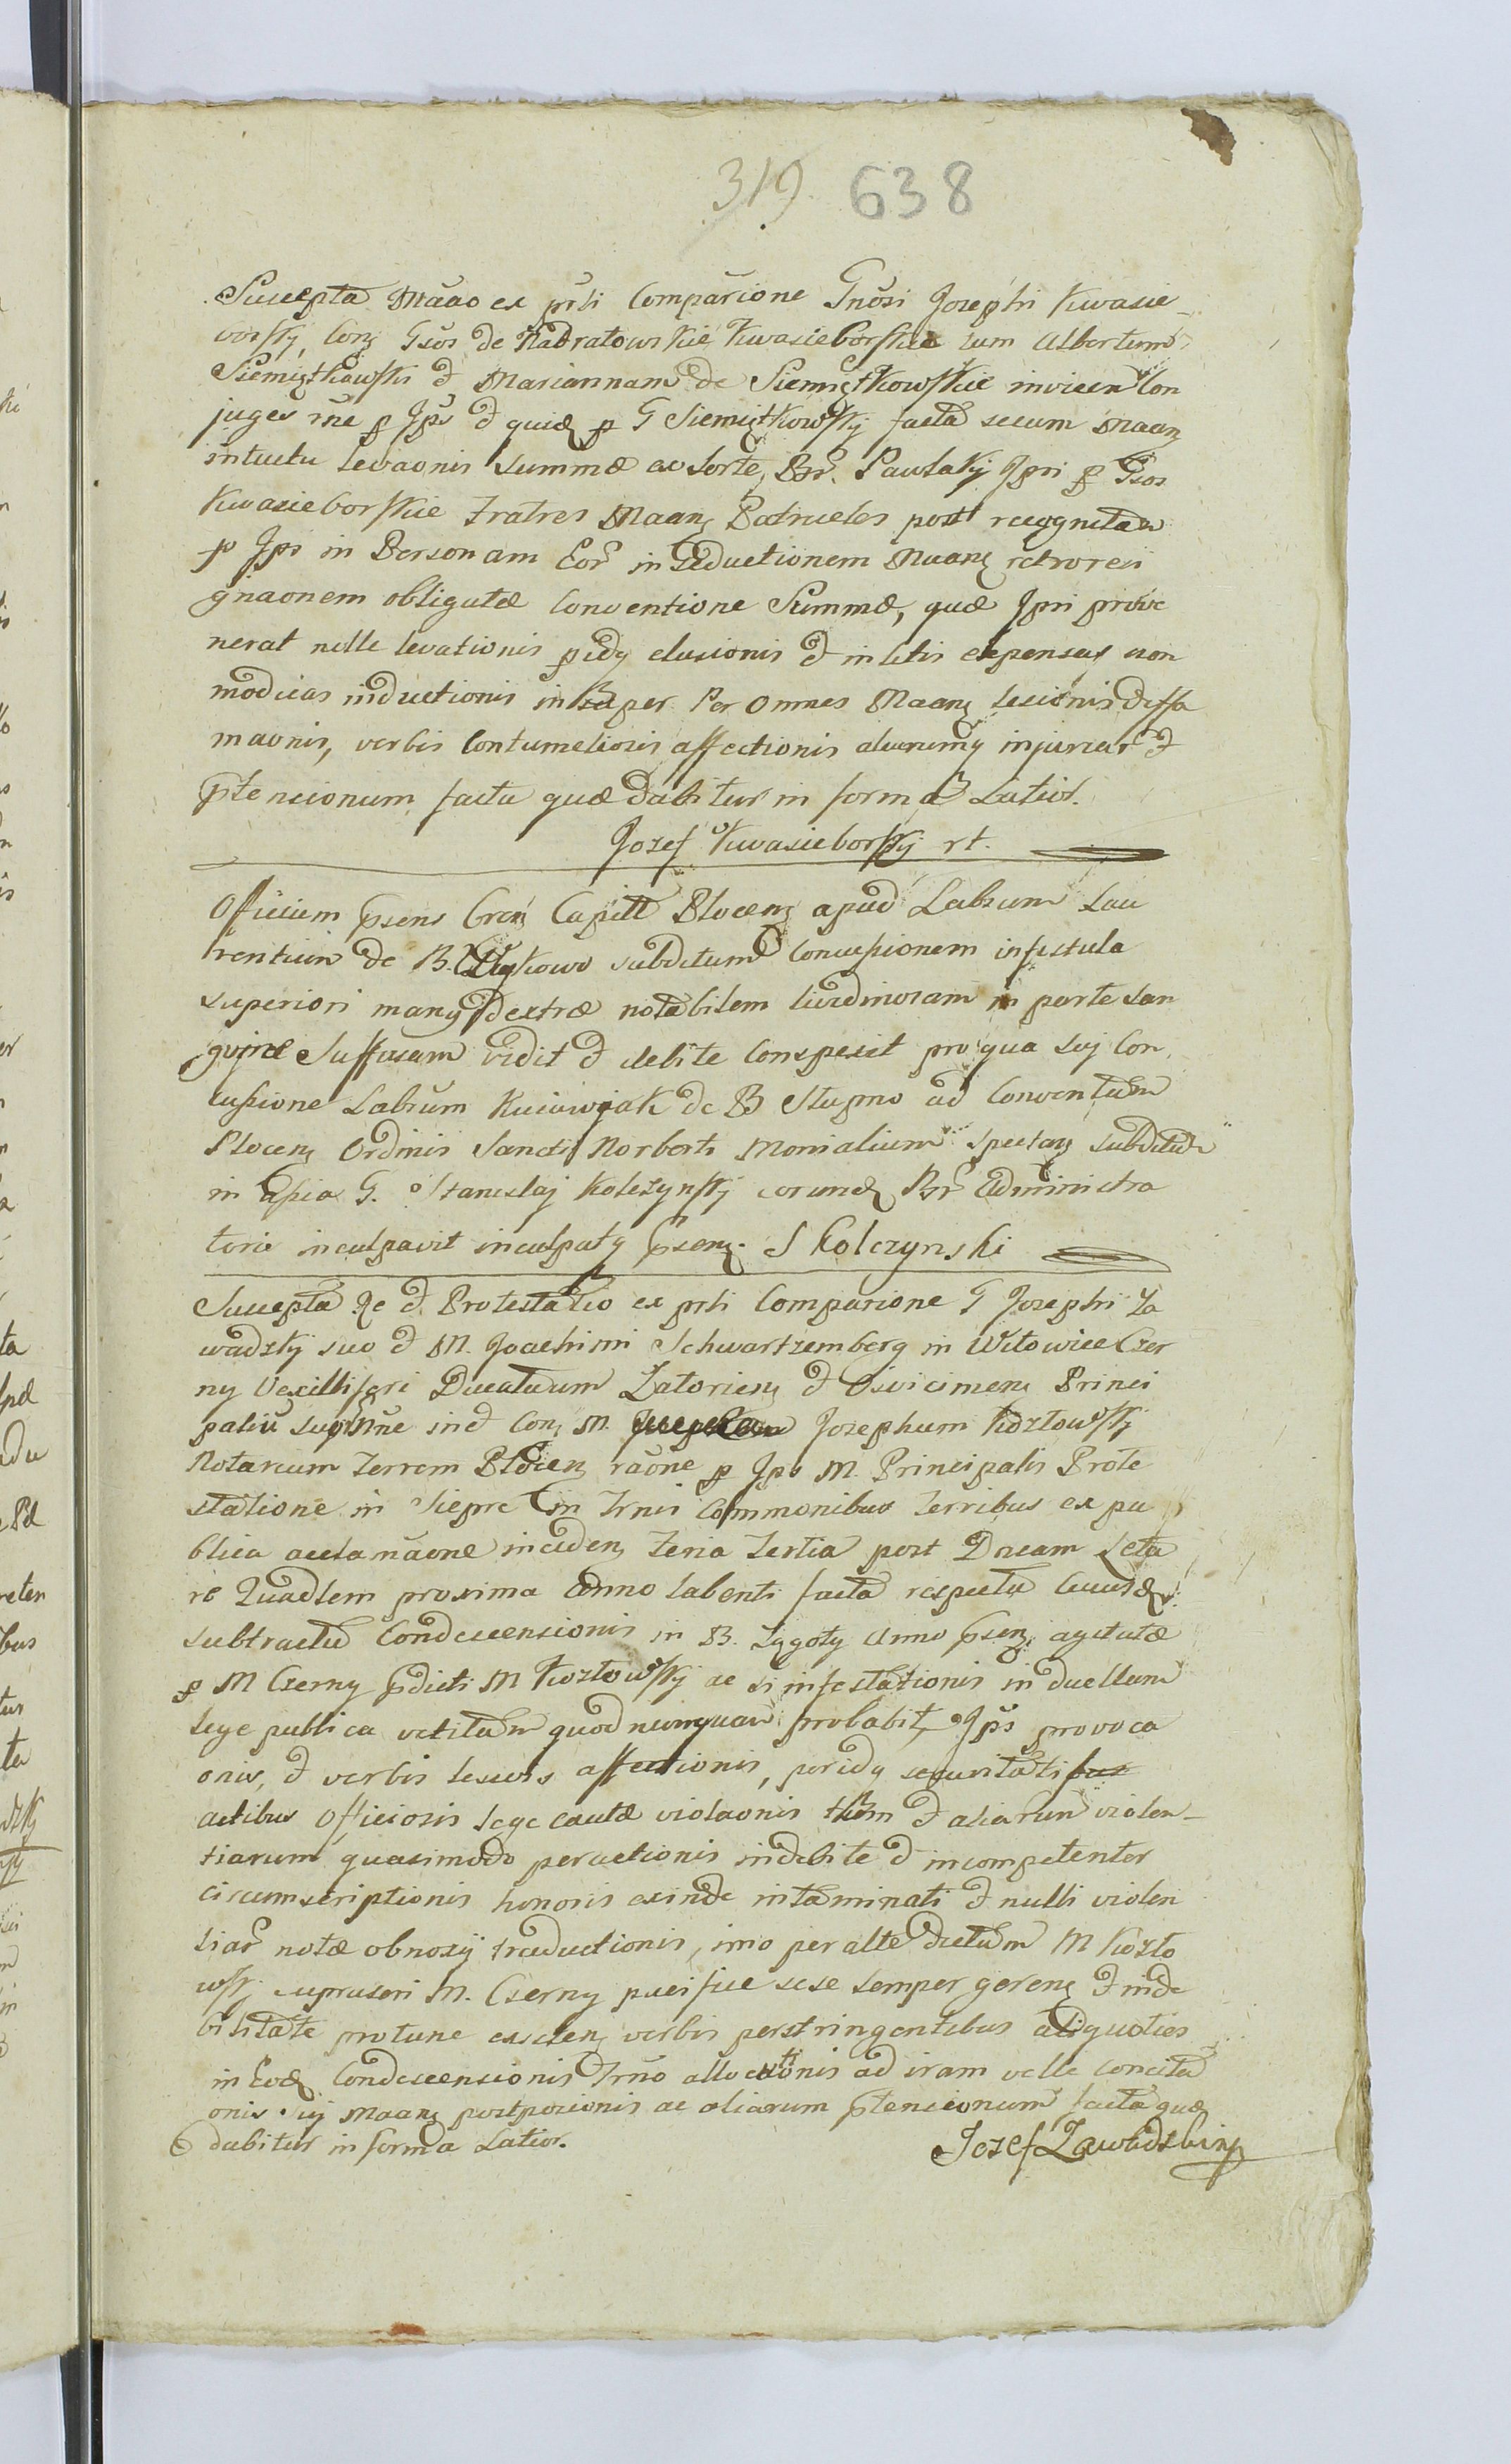 319. 638
Suscepta Mãao ex prsti Comparione Gnosi Josephi Kwasie
vorskÿ, Conz Gsos de Nadratowskie Kwasieborskie tum Albertum
Siemiątkowski & Mariannam de Siemiątkowskie invicem Con
juges rne p Ips & quidz p G Siemiątkowskÿ facta secum Maanz
intuitu levaonis Summæ ac sorte, Bṙ. Pawlakÿ Ipri p Gsos
Kwasieborskie Fratres Maanz Patrueles post recognitam
p Ips in Personam Eoṙ in seductionem Maanz retroresi
gnaonem obligatæ Conventione Summæ, quæ Ipri prove
nerat nelle levationis pidy elusionis & in litis expensas non
modicas inductionis insuper Per omnes Maanz lesionis diffa
maonis, verbis Contumeliosis affectionis aliarumq injuriaṙ &
ptensionum facta quæ dabitur in forma Latior.
Jozef Kwasieborskÿ rt.
Officium psens Gren Capitt Plocenz apud Labrum Lau
rentium de B. subditum Concussionem in fistula
superiori manq dextræ notabilem livedinosam in parte san
gvjne Suffusam vidit & debite Conspexit pro qua sui Con
cussione Labrum Kuiawiak de B Slupno ad Conventum
Plocenz Ordinis Sancti Norberti Monialium Spectanz Subditum
in assia G. Stanislaj Kolczynskÿ eorundz Bṙ Administra
toris inculpavit inculpatq psenz. S Kolczynski
Suscepta Re & Protestatio ex prsti Comparione G Josephi Za
wadzkÿ suo & M. Joachimi Schwartzemberg in Witowice Czer
ny Vexilliferi Ducatuum Zatorienz & Osvicimenz Princi
paliũ supr Nne in & Conz M. Josephum Kozłowskÿ
Notarium Terrem Plocenz raõne p Ips M. Principalis Prote
statione in Siepre in Trnis Commonibus Terribus ex pu
blica acclamãone incidenz Feria Tertia post Dncam Læta
re Quadlem proxima Anno labenti facta respectu Cuiusdz
subtractu Condescensionis in B. Zągoty Anno psenz agitatæ
p M Czerny pdicti M Kozłowskÿ ac si infestationis in duellum
lege publica vetitum quod nunquam probabit, Ips provoca
onis, & verbis lesivis affectionis, peridq securitatis
actibus Officiosis lege cautæ violaonis tum & aliarum violen
tiarum quasimodo peractionis indebite & incompetenter
circumscriptionis honoris exinde intaminati & nulli violen
tiaṙ notæ obnoxij traductionis, imo per alte dictum M Kozło
wskÿ M. Czerny pacifice sese semper gerenz & inde
bilitate protunc existenz verbis perstringentibus aliquoties
in Eodz Condescensionis Trno allocutionis ad iram velle concita
onis suj Maanz postposionis ac aliarum ptensionum facta quæ
dabitur in forma Latior. Jozef Zawadzki mp